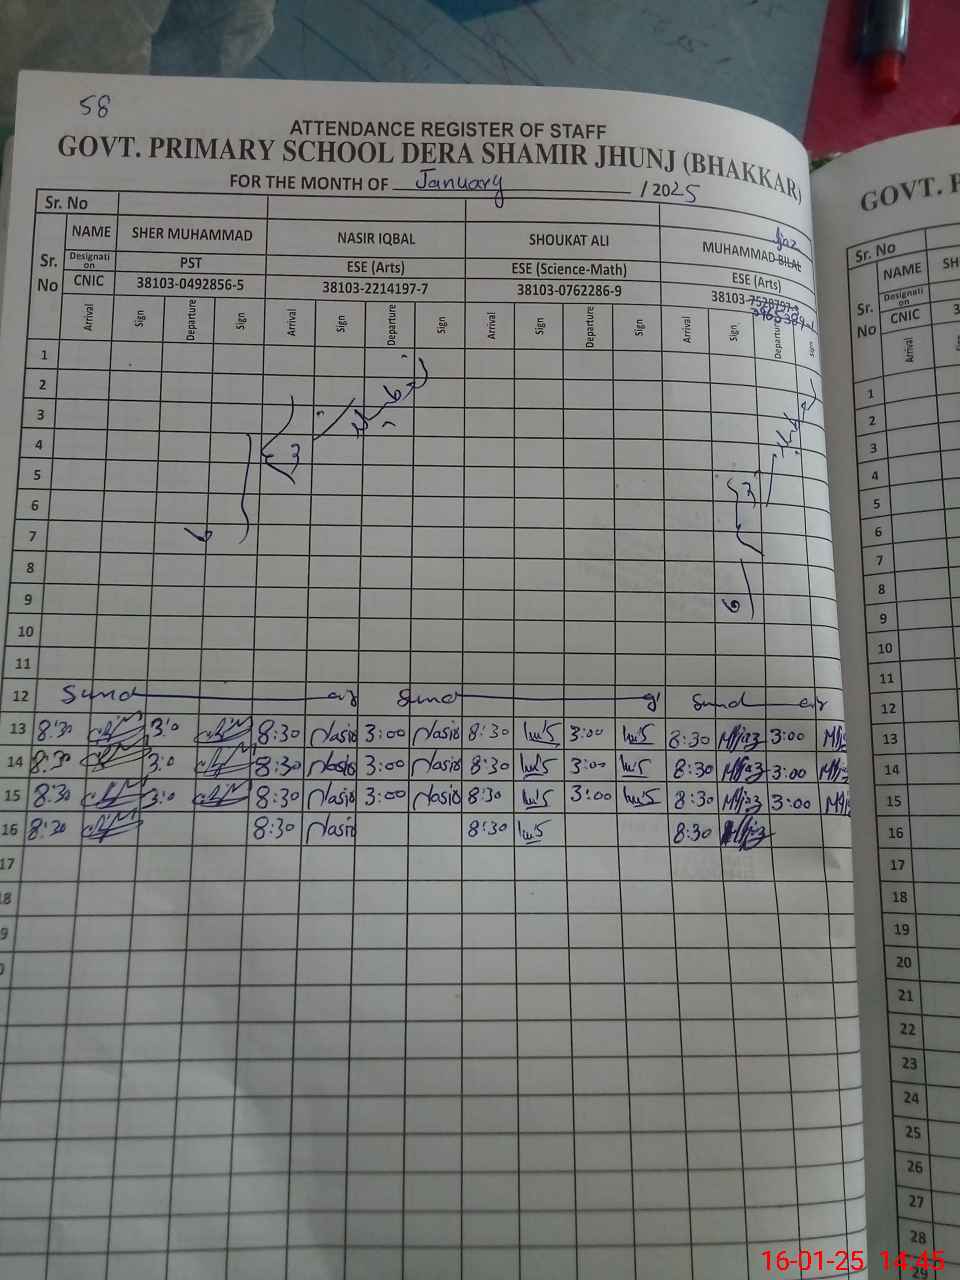 58
ATTENDANCE REGISTER OF STAFF
GOVT. PRIMARY SCHOOL DERA SHAMIR JHUNJ (BHAKKAR)
FOR THE MONTH OF January / 2025
Sr. No
NAME SHER MUHAMMAD NASIR IQBAL SHOUKAT ALI MUHAMMAD BILAL Ijaz
Sr. No
Designation PST ESE (Arts) ESE (Science-Math) ESE (Arts)
CNIC 38103-0492856-5 38103-2214197-7 38103-0762286-9 38103-
Arrival Sign Departure Sign Arrival Sign Departure Sign Arrival Sign Departure Sign Arrival Sign Departure Sign
1
2
3
4
5
6
7
8
9
10
11
12 Sund ay Sund ay Sund ay
13 8:30 3:0 8:30 Nasir 3:00 Nasir 8:30 3:00 8:30 MIjaz 3:00
14 8:30 3:0 8:30 Nasir 3:00 Nasir 8:30 3:00 8:30 MIjaz 3:00
15 8:30 3:0 8:30 Nasir 3:00 Nasir 8:30 3:00 8:30 MIjaz 3:00
16 8:30 8:30 Nasir 8:30 8:30 MIjaz
17
8
9
GOVT. P
Sr. No
NAME SH
Sr. No
Designation
CNIC 3
Arrival
1
2
3
4
5
6
7
8
9
10
11
12
13
14
15
16
17
18
19
20
21
22
23
24
25
26
27
28
29
16-01-25 14:45